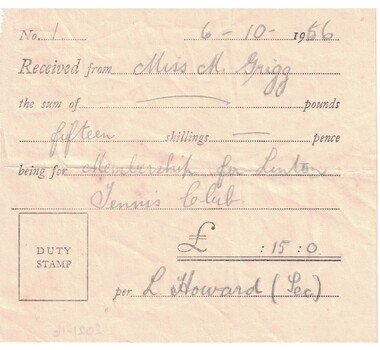 No. 1 6-10-1956
Received from Miss M. Grigg
the sum of — pounds
fifteen shillings — pence
being for Membership for Linton
Tennis Club.
£ : 15 : 0
DUTY
STAMP
per L Howard (Sec)